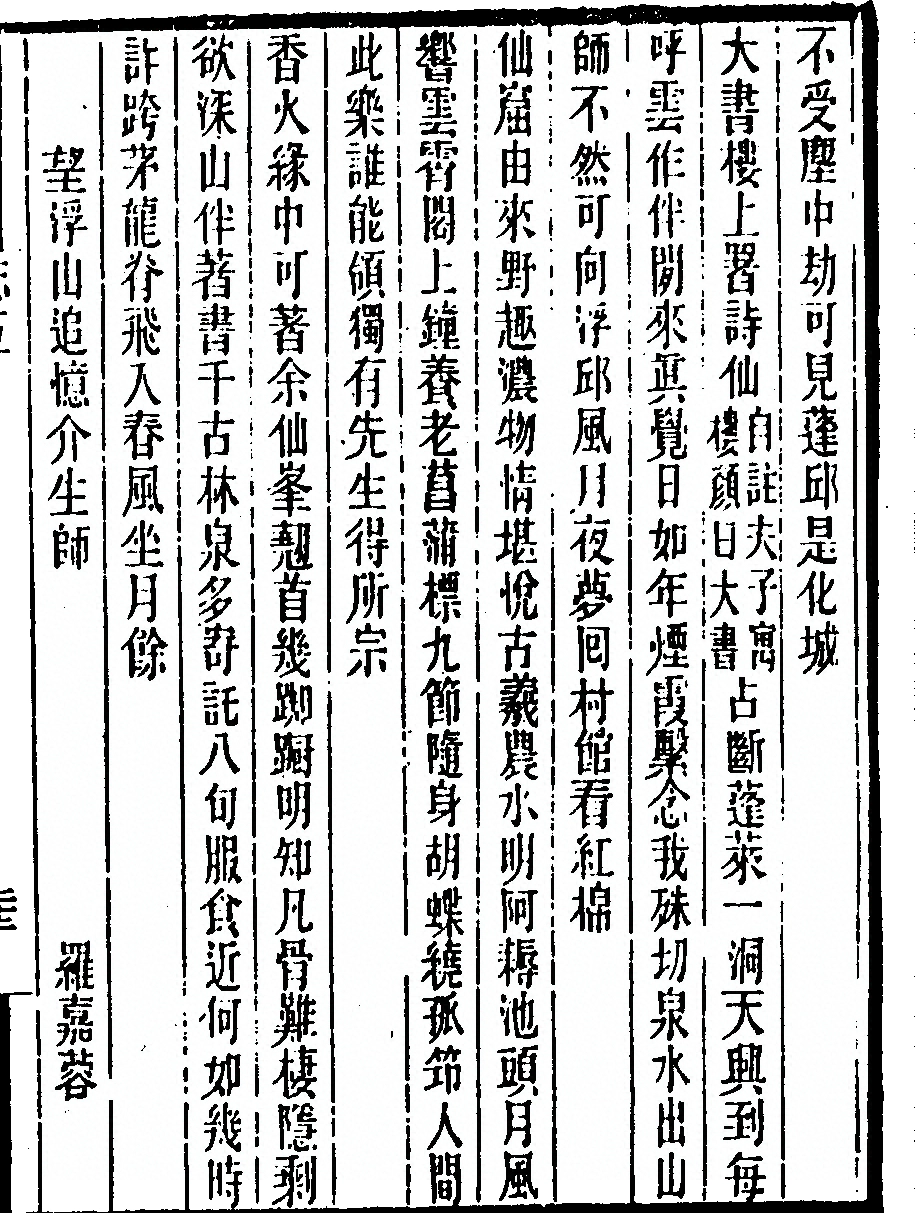 不受塵中劫可見蓬邱是化城
大書樓上署詩仙自註夫子寓樓顏曰大書占斷蓬萊一洞天興到每
呼雲作伴閒來眞覺日如年煙霞繫念我殊切泉水出山
師不然可向浮邱風月夜夢回村館看紅棉
仙窟由來野趣濃物情堪悅古羲農水明阿耨池頭月風
響雲霄閣上鐘養老菖蒲標九節隨身胡蝶繞孤筇人間
此樂誰能領獨有先生得所宗
香火緣中可著余仙峯翹首幾踟躕明知凡骨難棲隱剩
欲深山伴著書千古林泉多寄託八旬服食近何如幾時
許跨茅龍脊飛入春風坐月餘
望浮山追憶介生師 羅嘉蓉